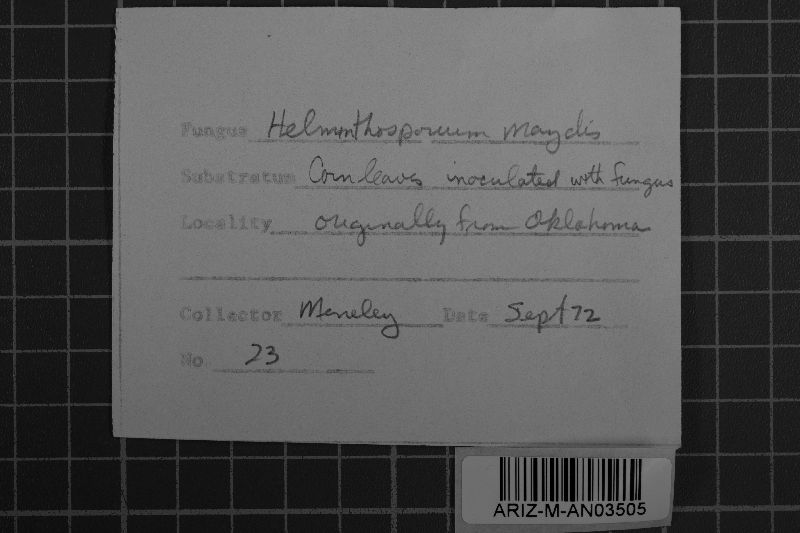 Fungus Helminthosporium maydis
Substratum Corn leaves inoculated with fungus
Locality originally from Oklahoma
Collector Meneley Date Sept 72
No. 23
ARIZ-M-AN03505